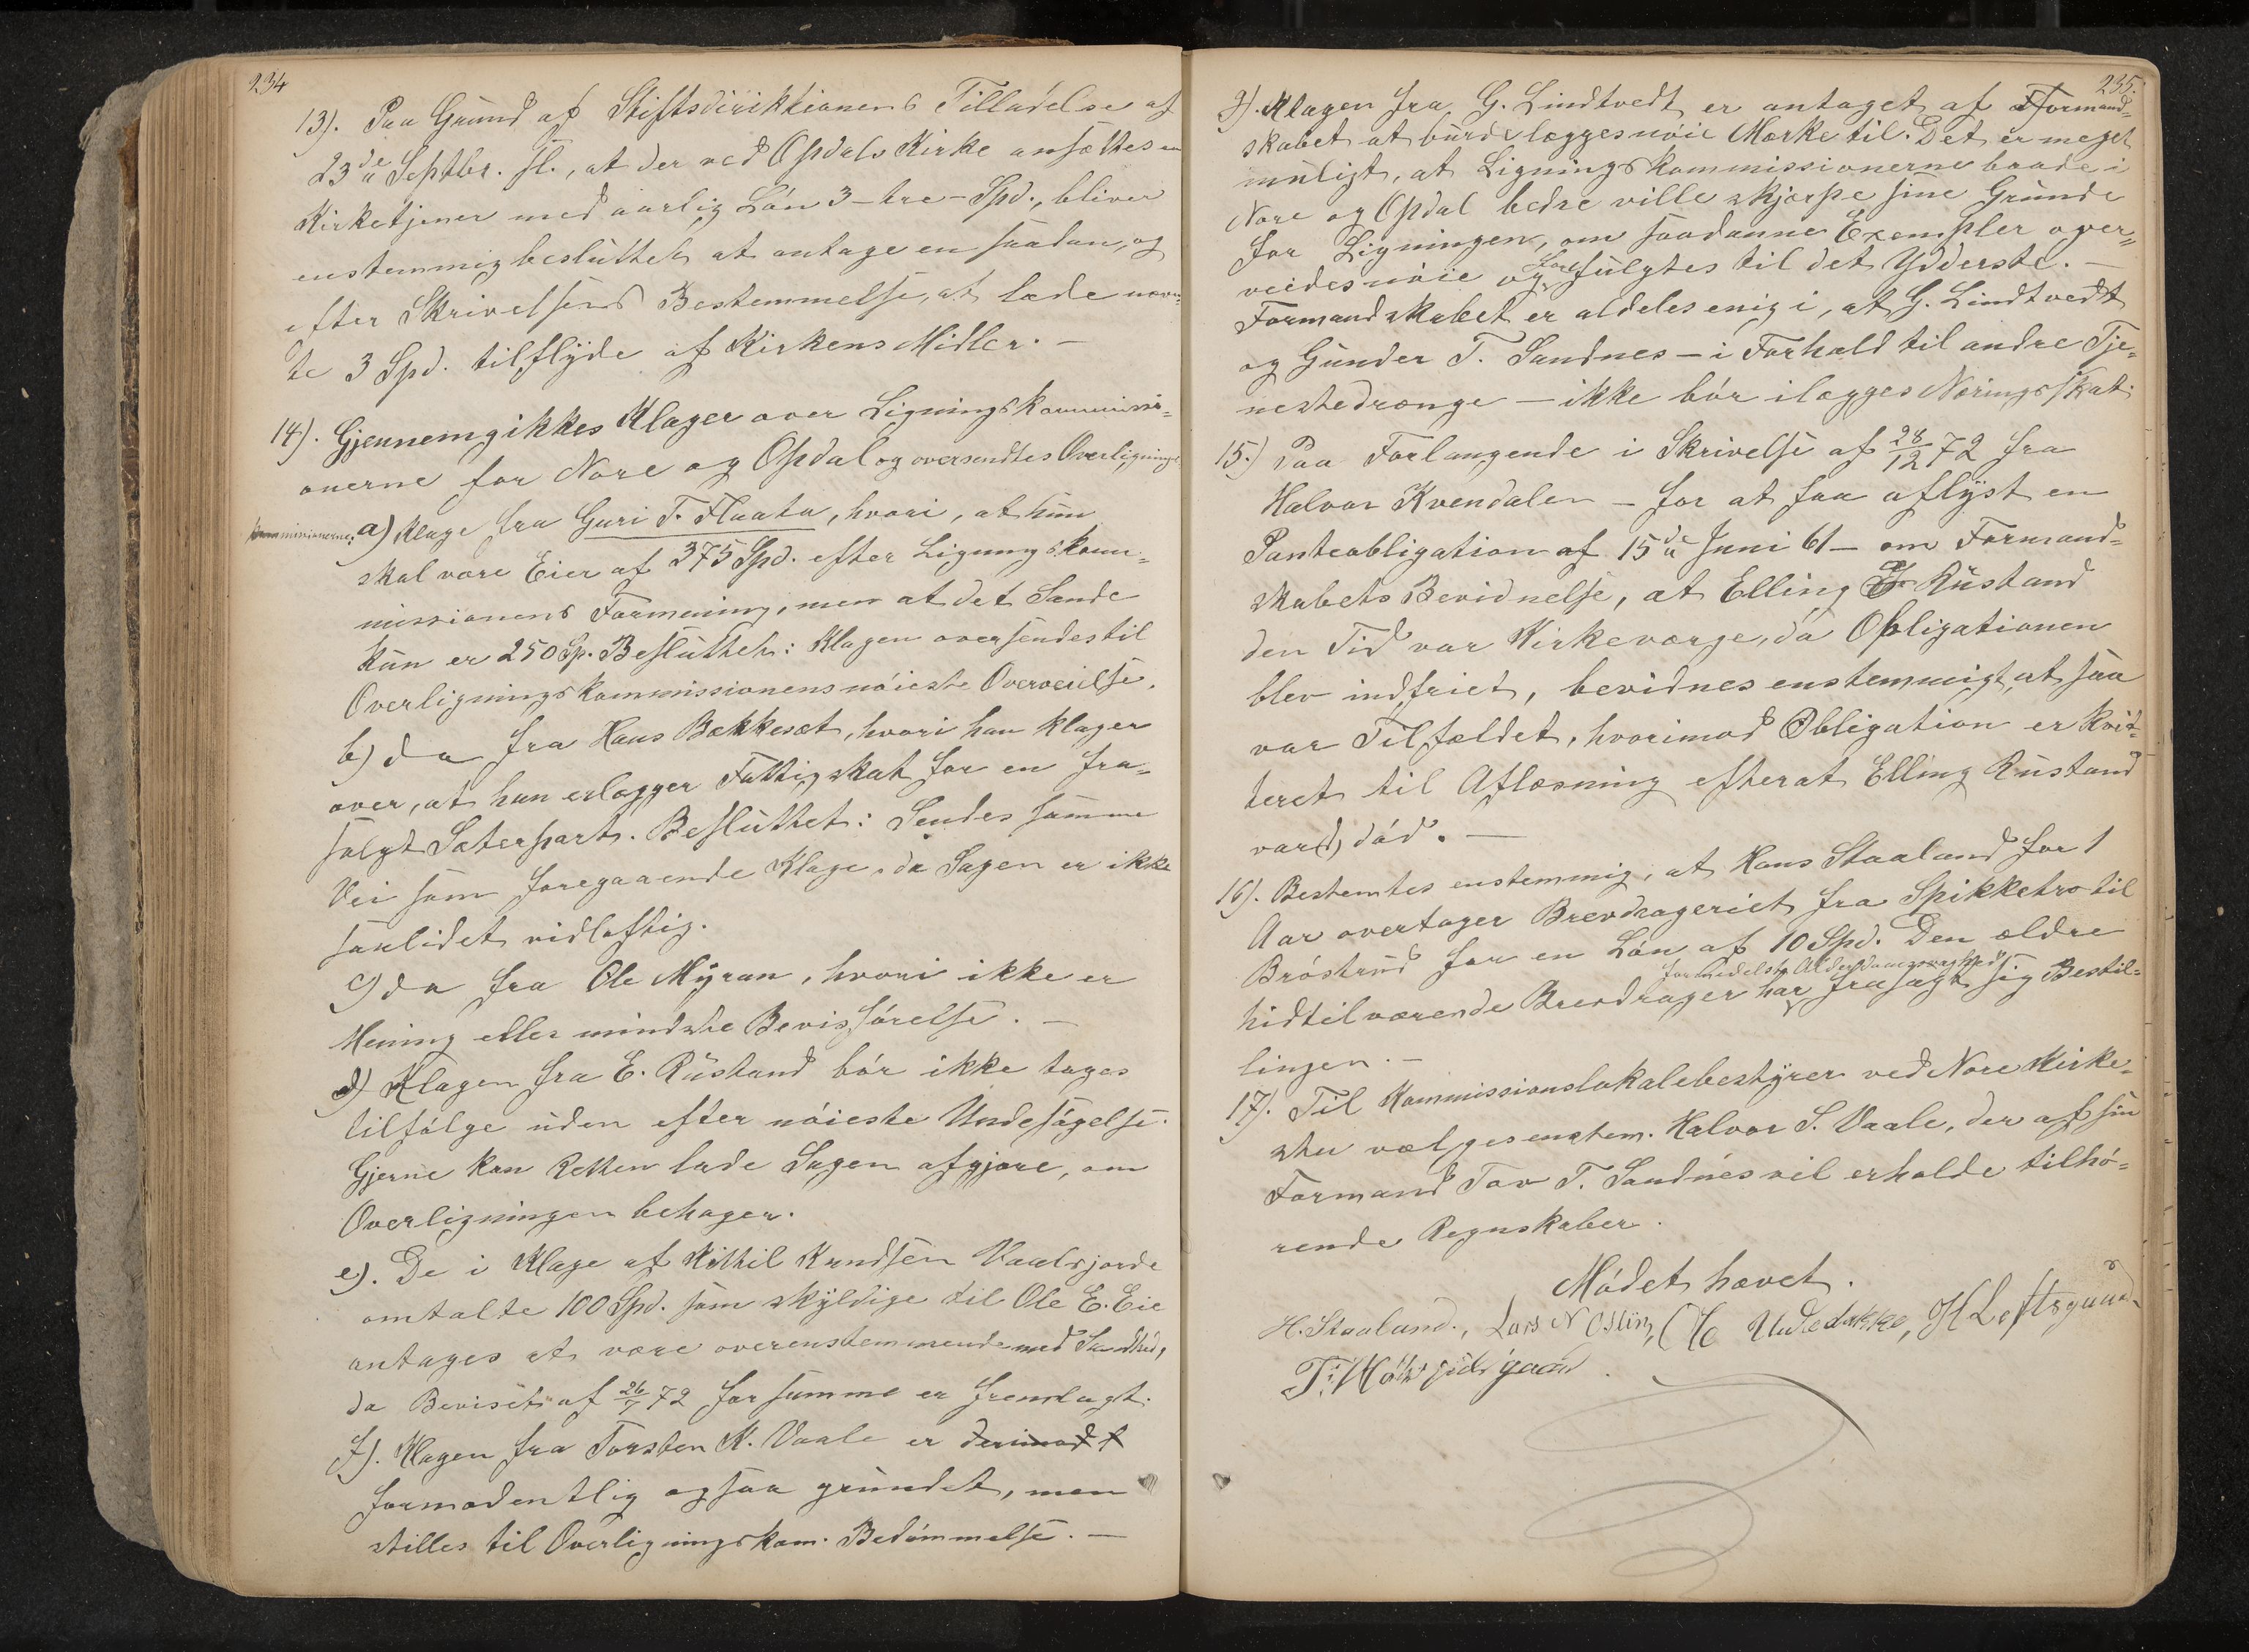 234
13). Paa Grund af Stiftsdirektionens Tilladelse af
23de Septbr. fl., at der ved Opdals Kirke ansættes en
Kirketjener med aarlig Løn 3 – tre – Spd., bliver
enstemmig besluttet at antage en saadan, og
efter Skrivelsens Bestemmelse, at lade nævn-
te 3 Spd. tilflyde af Kirkens Midler. –
14). Gjennemgikkes Klager over Ligningskommissi-
onerne for Nore og Opdal og oversendtes Overlignings-
kommissionerne: a) Klage fra Guri T. Flaata, hvori, at hun
skal være Eier af 375 Spd. efter Ligningskom-
missionens Formening, men at det Sande
kun er 250 Sp. Besluttet: Klagen oversendes til
Overligningskommissionens nøieste Overveielse.
b) do fra Hans Bækkesæt, hvori han klager
over, at han erlægger Fattigskat for en fra-
solgt Sæterpart. Besluttet: Sendes samme
Vei som foregaaende Klage, da Sagen er ikke
saalidet vidløftig.
c) do fra Ole Myran, hvori ikke er
Mening eller mindste Bevisførelse. –
d) Klagen fra E. Rustand bør ikke tages
tilfølge uden efter nøieste Undesøgelse.
Gjerne kan Retten lade Sagen afgjøre, om
Overligningen behager.
e). De i Klage af Kittil Knudsen Vaalsjorde
omtalte 100 Spd. som skyldige til Ole E. Eie
antages at være overensstemmende med Sandhed,
da Beviset af 26/7 72 for samme er fremlagt.
f). Klagen fra Torsten K. Vaale er derimod f
formodentlig ogsaa grundet, men
stilles til Overligningskom. Bedømmelse. –
235.
g). Klagen fra G. Lindtvedt er antaget af Formand-
skabet at burde lægges nøie Mærke til. Det er meget
muligt, at Ligningskommissionerne baade i
Nore og Opdal bedre ville skjærpe sine Grunde
for Ligningen, om saadanne Exempler over-
veides nøie og forfulgtes til det Yderste. –
Formandskabet er aldeles enig i, at G. Lindtvedt
og Gunder T. Sandnes – i Forhold til andre Tje-
nestedrenge – ikke bør ilægges Næringsskat.
15.) Paa Forlangende i Skrivelse af 28/12 72 fra
Halvor Kvendalen – for at faa aflyst en
Panteobligation af 15de Juni 61 – om Formand-
skabets Bevidnelse, at Elling Rustand
den Tid var Kirkeværge, da Obligationen
blev indfriet, bevidnes enstemmigt, at saa
var Tilfældet, hvorimod Obligation er kvit-
teret til Aflæsning efterat Elling Rustand
var(d) død. –
16). Bestemtes enstemmig, at Hans Staaland for 1
Aar overtager Brevdrageriet fra Spikketro til
Brøstrud for en Løn af 10 Spd. Den ældre
hidtilværende Brevdrager har formedelst Alderdomssvaghed frasagt sig Bestil-
lingen. –
17). Til Kommissionslokalebestyrer ved Nore Kirke-
ster vælges enstem. Halvor S. Vaale, der af sin
Formand Tov T. Sandnes vil erholde tilhø-
rende Regnskaber.
Mødet hævet.
H. Staaland., Lars N Oslin, H Loftsgaard